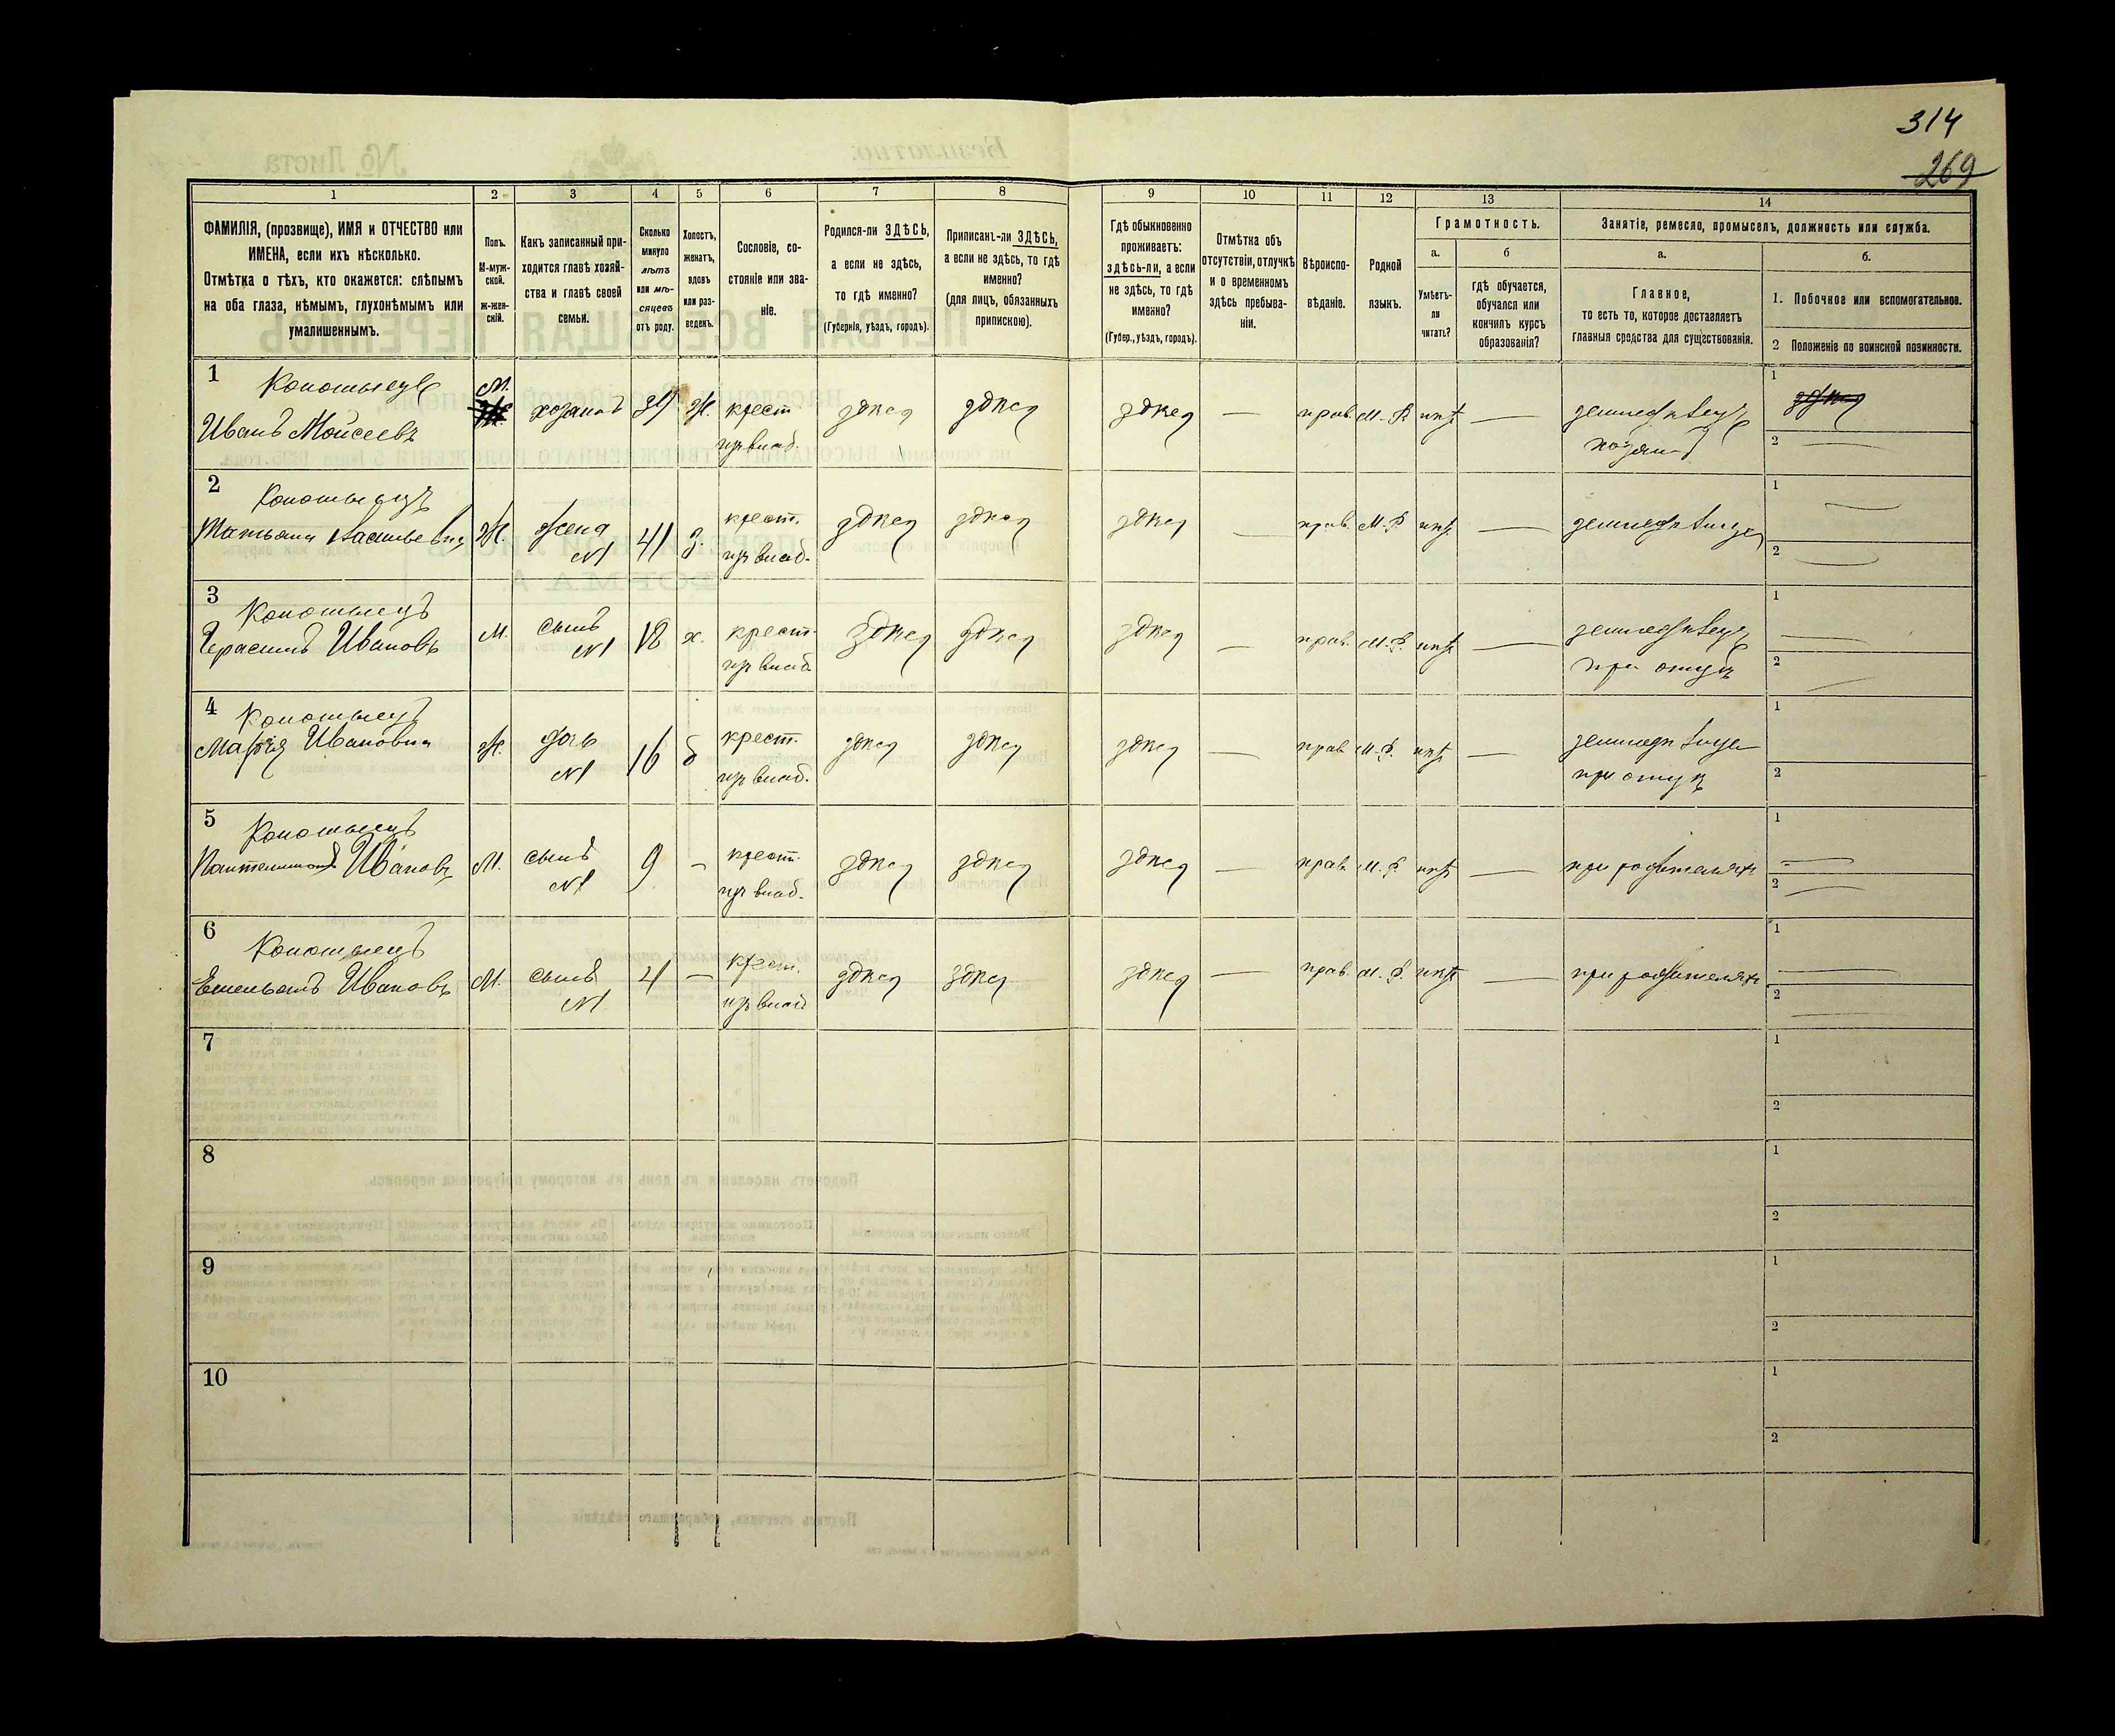 314
269
1
2
3
4
5
6
7
8
9
10
11
12
13
14
ФАМИЛІЯ, (прозвище), ИМЯ и ОТЧЕСТВО или
ИМЕНА, если ихъ нѣсколько.
Отмѣтка о тѣхъ, кто окажется: слѣпымъ
на оба глаза, нѣмымъ, глухонѣмымъ или
умалишеннымъ.
Полъ.
М-муж-
ской.
ж-жен-
скій.
Какъ записанный при-
ходится главѣ хозяй-
ства и главѣ своей
семьи.
Сколько
минуло
лѣтъ
или мѣ-
сяцевъ
отъ роду.
Холостъ,
женатъ,
вдовъ
или раз-
веденъ.
Сословіе, со-
стояніе или зва-
ніе.
Родился-ли ЗДѢСЬ,
а если не здѣсь,
то гдѣ именно?
(Губернія, уѣздъ, городъ).
Приписанъ-ли ЗДѢСЬ,
а если не здѣсь, то гдѣ
именно?
(для лицъ, обязанныхъ
припискою).
Гдѣ обыкновенно
проживаетъ:
здѣсь-ли, а если
не здѣсь, то гдѣ
именно?
(Губер., уѣздъ, городъ).
Отмѣтка объ
отсутствіи, отлучкѣ
и о временномъ
здѣсь пребыва-
ніи.
Вѣроиспо-
вѣданіе.
Родной
языкъ.
Грамотность.
а.
Умѣетъ-
ли
читать?
б
гдѣ обучается,
обучался или
кончилъ курсъ
образованія?
Занятіе, ремесло, промыселъ, должность или служба.
а.
Главное,
то есть то, которое доставляетъ
главныя средства для существованія.
б.
1. Побочное или вспомогательное.
2 Положеніе по воинской повинности.
1
Иванъ Моисеевъ
М.
хозяинъ
Ж.
крест.
изъ влад.
здѣсь
здѣсь
здѣсь
—
прав.
М. Р.
нѣтъ
—
земледѣлецъ
хозяинъ
1 здѣсь
2 —
2
Татьяна Васильевна
Ж.
жена
№1
41
З.
крест.
изъ влад.
здѣсь
здѣсь
здѣсь
—
прав.
М. Р.
нѣтъ
—
1 —
2 —
3
Герасимъ Ивановъ
М.
сынъ
№1
18
х.
крест.
изъ влад.
здѣсь
здѣсь
здѣсь
—
прав.
М. Р.
нѣтъ
—
земледѣлецъ
при отцѣ
1 —
2 —
4
Ивановна
Ж.
дочь
№1
16
крест.
изъ влад.
здѣсь
здѣсь
здѣсь
—
прав.
М. Р.
нѣтъ
—
при отцѣ
1
2
5
Ивановъ
М.
сынъ
№1
9
—
крест.
изъ влад.
здѣсь
здѣсь
здѣсь
—
прав.
М. Р.
нѣтъ
—
при родителяхъ
1 —
2 —
6
Емельянъ Ивановъ
М.
сынъ
№1
4
—
крест.
изъ влад.
здѣсь
здѣсь
здѣсь
—
прав.
М. Р.
нѣтъ
—
при родителяхъ
1 —
2 —
7
1
2
8
1
2
9
1
2
10
1
2